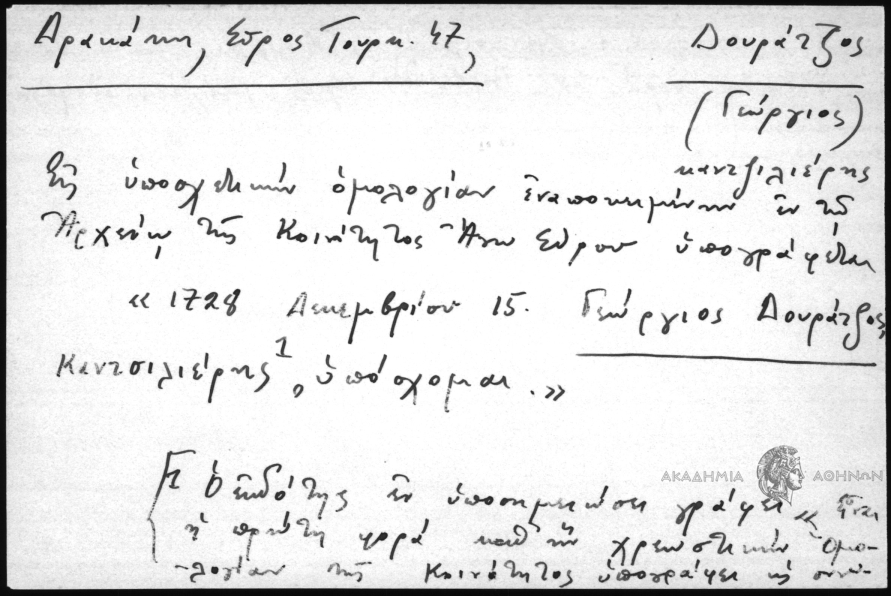 Δρακάκη, Σῦρος Τουρκ. 47,
Δουράτζος
(Γεώργιος)
καντζιλιέρης
Εἰς ὑποσχετικὴν ὁμολογίαν ἐναποκειμένην ἐν τῷ
Ἀρχείῳ τῆς Κοινότητος Ἄνω Σύρου ὑπογράφεται
« 1728 Δεκεμβρίου 15. Γεώργιος Δουράτζος,
Καντσιλιέρης 1, ὑπόσχομαι. »
[1 Ὁ ἐκδότης ἐν ὑποσημειώσει γράφει « εἶναι
ἡ πρώτη φορὰ καθ' ἣν χρεωστικὴν ὁμο-
-λογίαν τῆς Κοινότητος ὑπογράφει ὡς συνυ-
ΑΚΑΔΗΜΙΑ ΑΘΗΝΩΝ